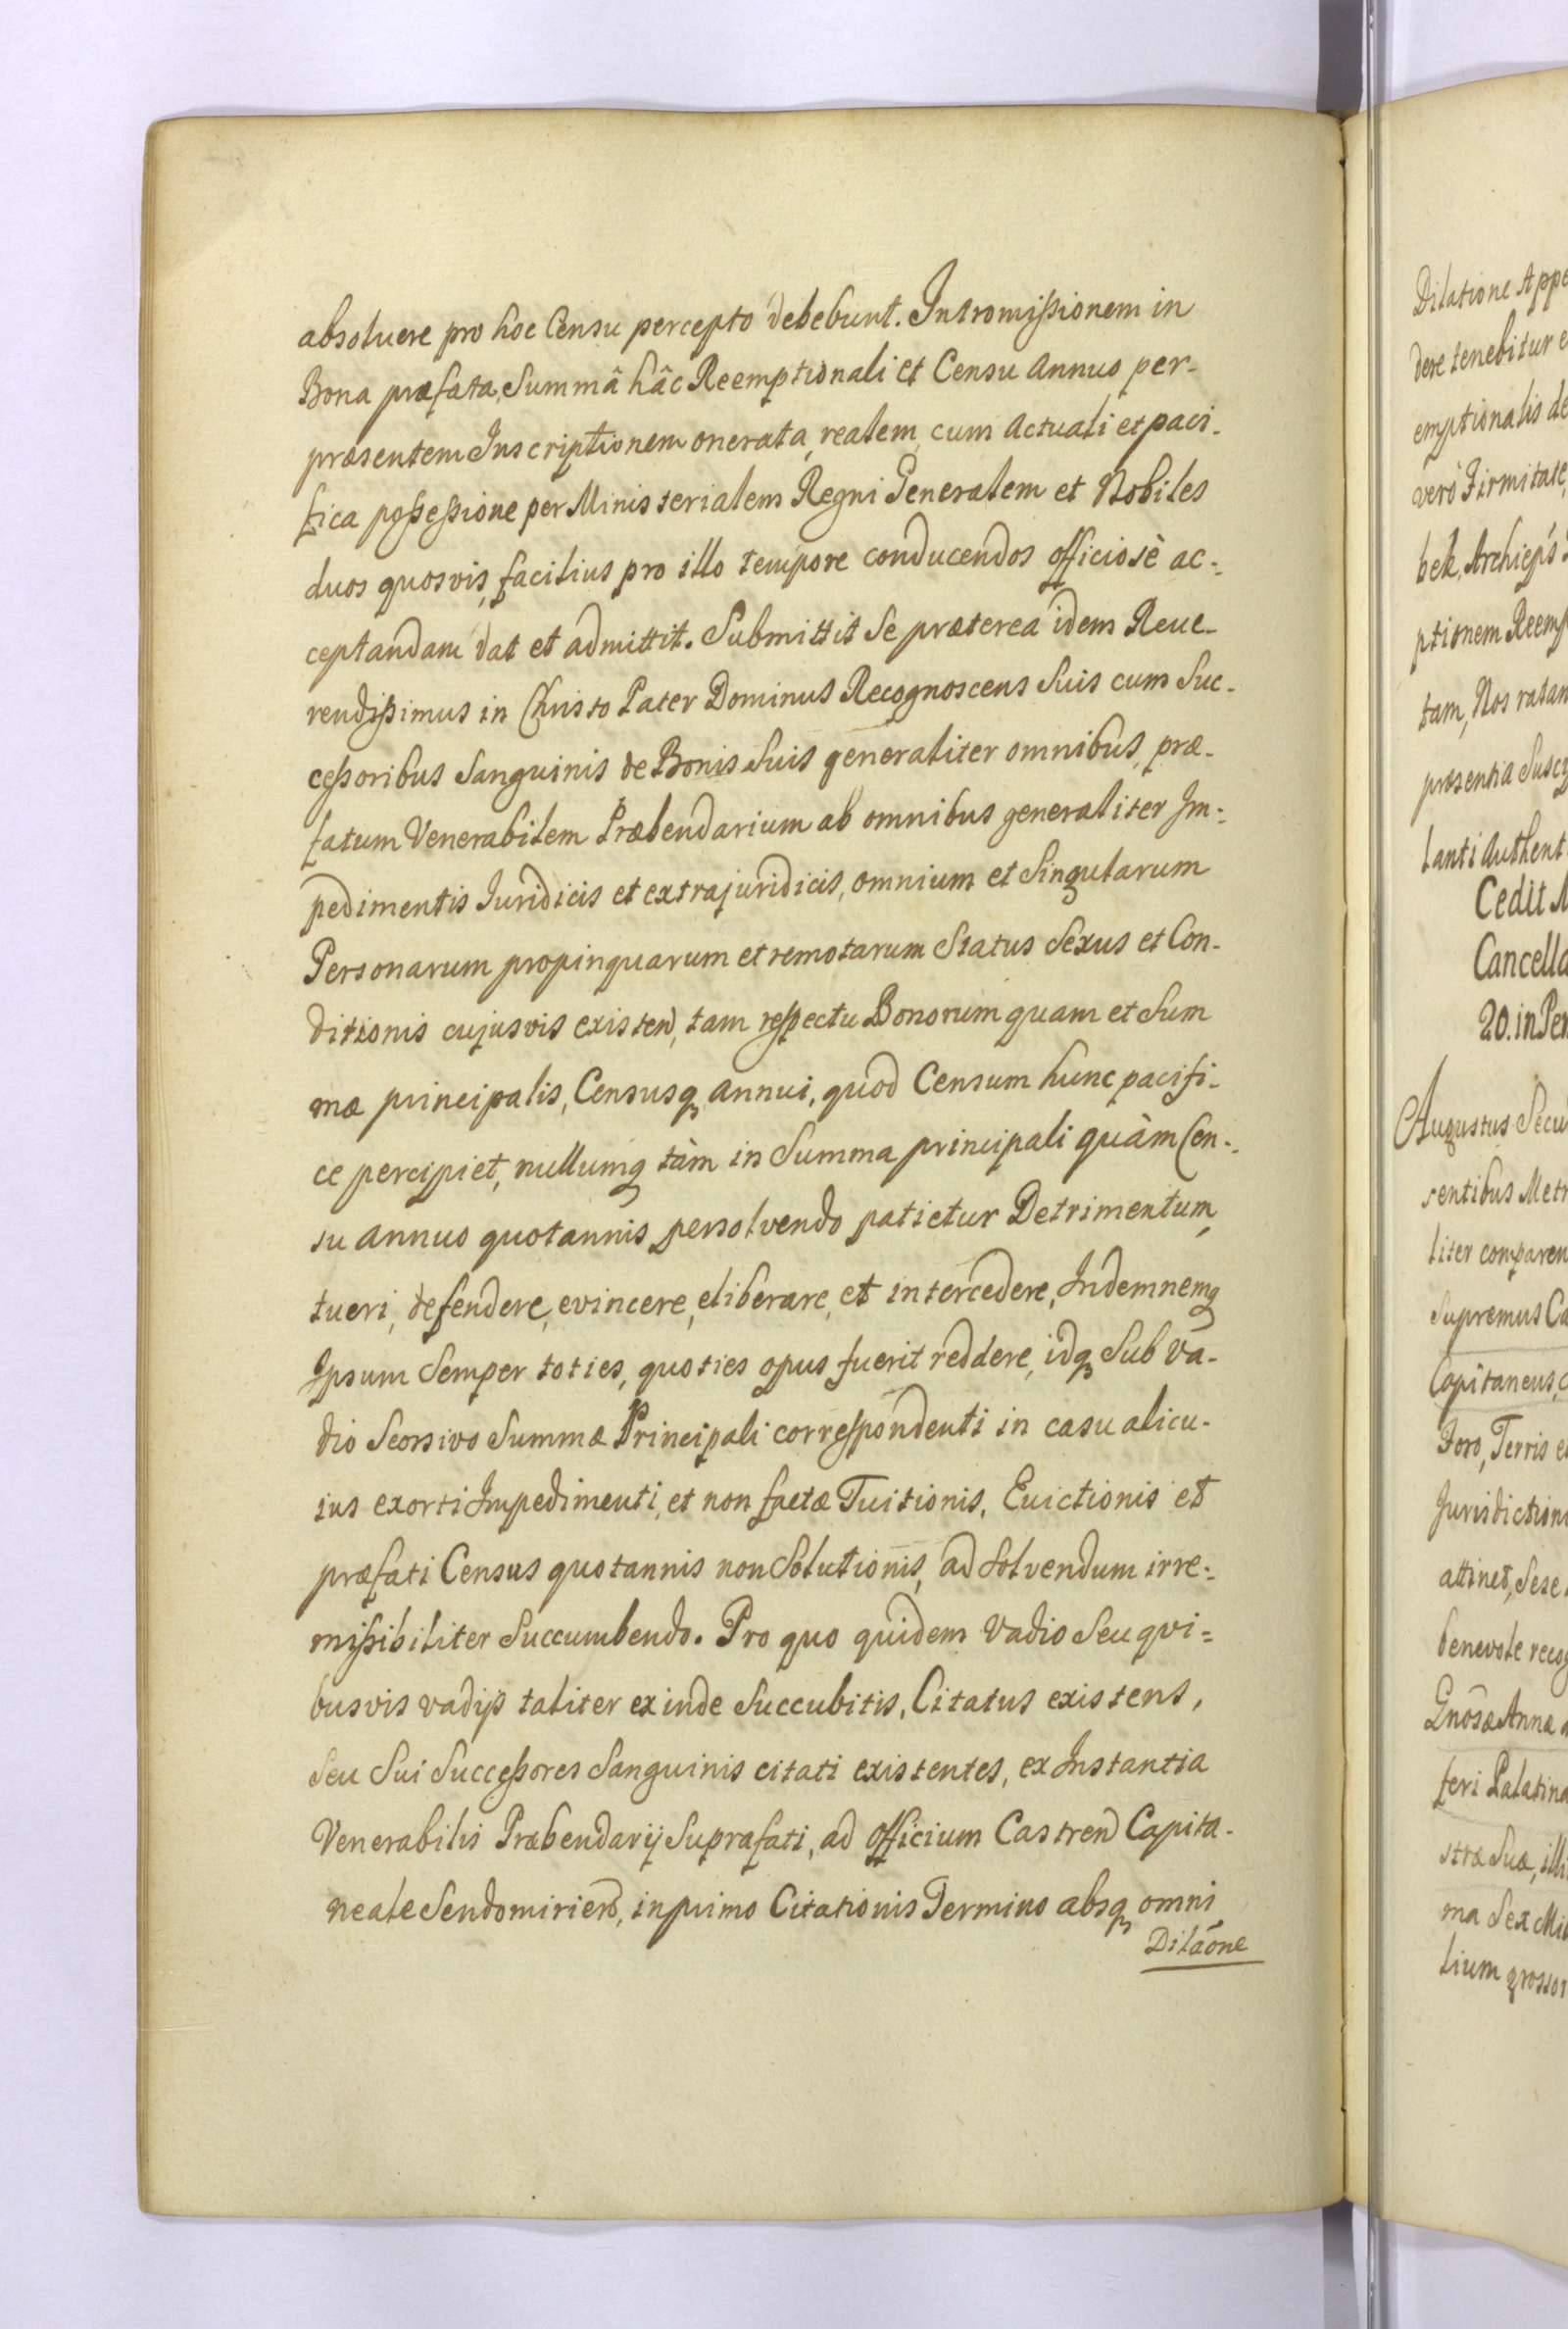 absoluere pro hoc Censu percepto debebunt. Intromißionem in
Bona præfata, Summâ hâc Reemptionali et Censu annuo per-
præsentem Inscriptionem onerata, realem, cum actuali et paci-
fica poßeßione per Ministerialem Regni Generalem et Nobiles
duos quosvis, facilius pro illo tempore conducendos officiosè ac-
ceptandam dat et admittit. Submittit se præterea idem Reve-
rendißimus in Christo Pater Dominus Recognoscens suis cum Suc-
ceßoribus Sanguinis de Bonis suis generaliter omnibus, præ-
fatum Venerabilem Præbendarium ab omnibus generaliter Im-
pedimentis Juridicis et extrajuridicis, omnium et Singularum
Personarum propinquarum et remotarum Status Sexus et Con-
ditionis cujusvis existen, tam respectu Bonorum quam et Sum
mæ principalis, Censusq annui, quod Censum hunc pacifi-
ce percipiet, nullumq tàm in Summa principali quàm Cen-
su annuo quotannis persolvendo patietur Detrimentum,
tueri, defendere, evincere, eliberare, et intercedere, Indemnemq
Ipsum Semper toties, quoties opus fuerit reddere, idq Sub va-
dio Seorsivo Summæ Principali correspondenti in casu alicu-
ius exorti Impedimenti, et non factæ Tuitionis, Evictionis et
præfati Census quotannis non Solutionis, ad Solvendum irre-
mißibiliter Succumbendo. Pro quo quidem Vadio Seu qvi=
busvis vadijs taliter exinde Succubitis, Citatus existens,
Seu Sui Succeßores Sanguinis citati existentes, ex Instantia
Venerabilis Præbendarij Suprafati, ad Officium Castren Capita-
neale Sendomirien, in primo Citationis Termino absq omni
Dilãone
Dilatione Appe
dere tenebitur e
emptionalis de
verò Firmitate,
bek, Archiep̃s
ptionem Reemp
tam, Nos ratam
præsentia Suscep
lanti Authent
Cedit
Cancella
20. in Per
Augustus Secu
sentibus Metr
liter comparen
Supremus Ca
Capitaneus,
Foro, Terris e
Jurisdictioni
attinet, Sese
benevole recog
Gnosæ Annæ
feri Palatina
stræ Suæ, illi
ma Sex Mil
lium grossor